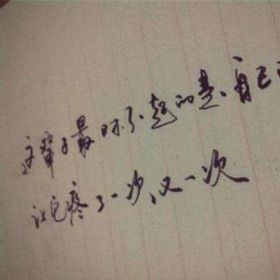 这辈子最对不起的是、自己
让它疼了一次、又一次